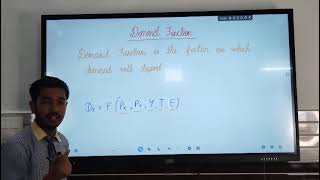 Demand Function
Demand Function is the function on which
demand will depend
Dx = F (Px, Pr, Y, T, E)